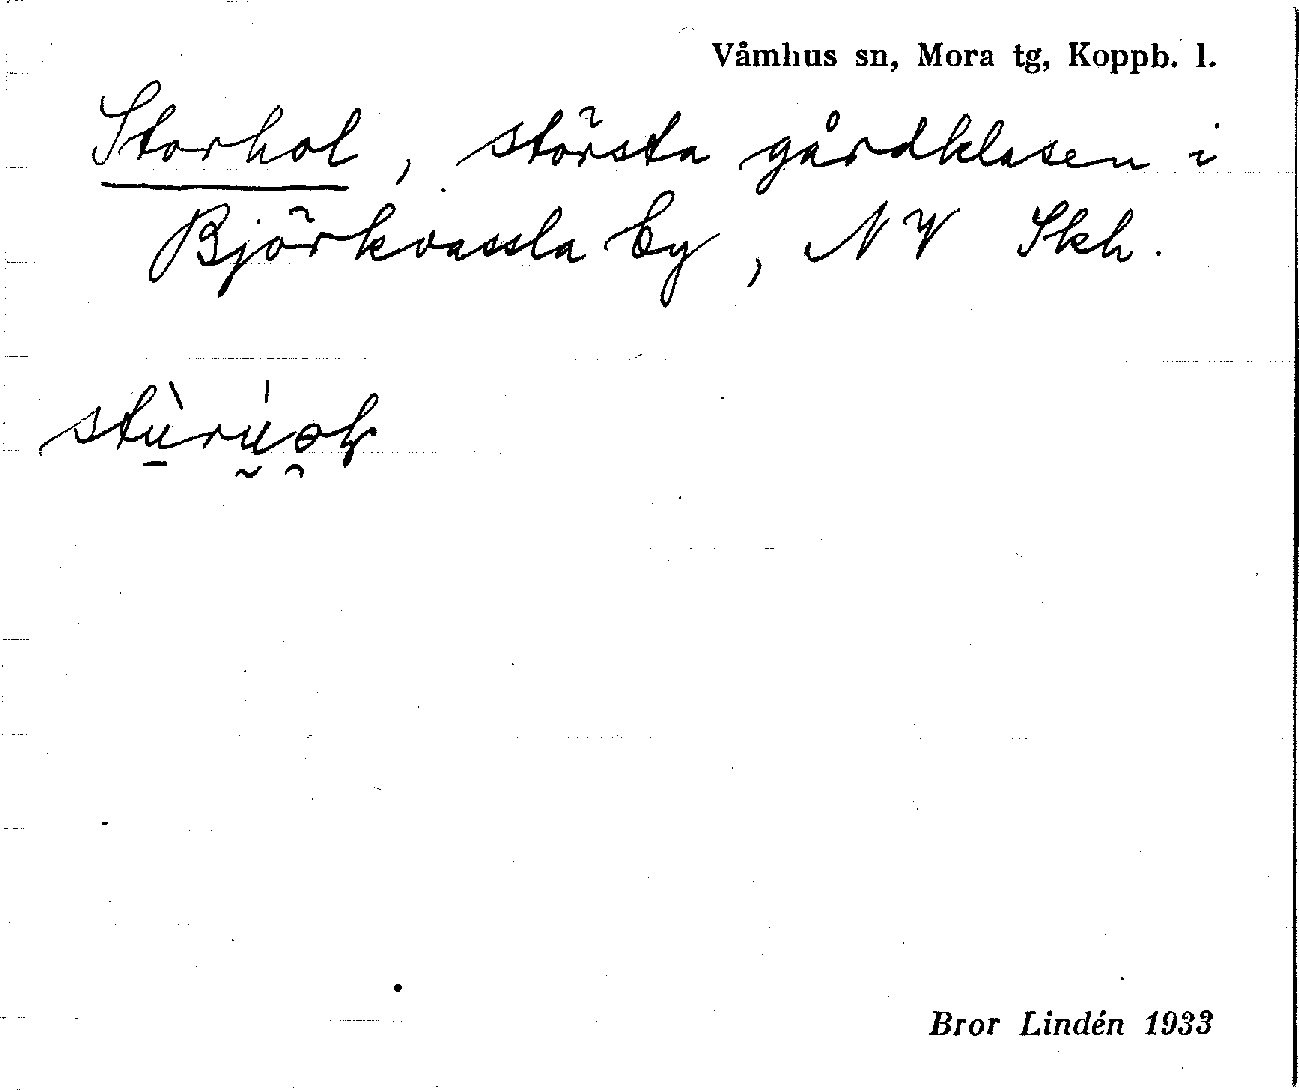 Våmhus sn, Mora tg, Koppb. l.
Storhol, största gårdklasen i
Björkvassla by, NV Skh.
Bror Lindén 1933